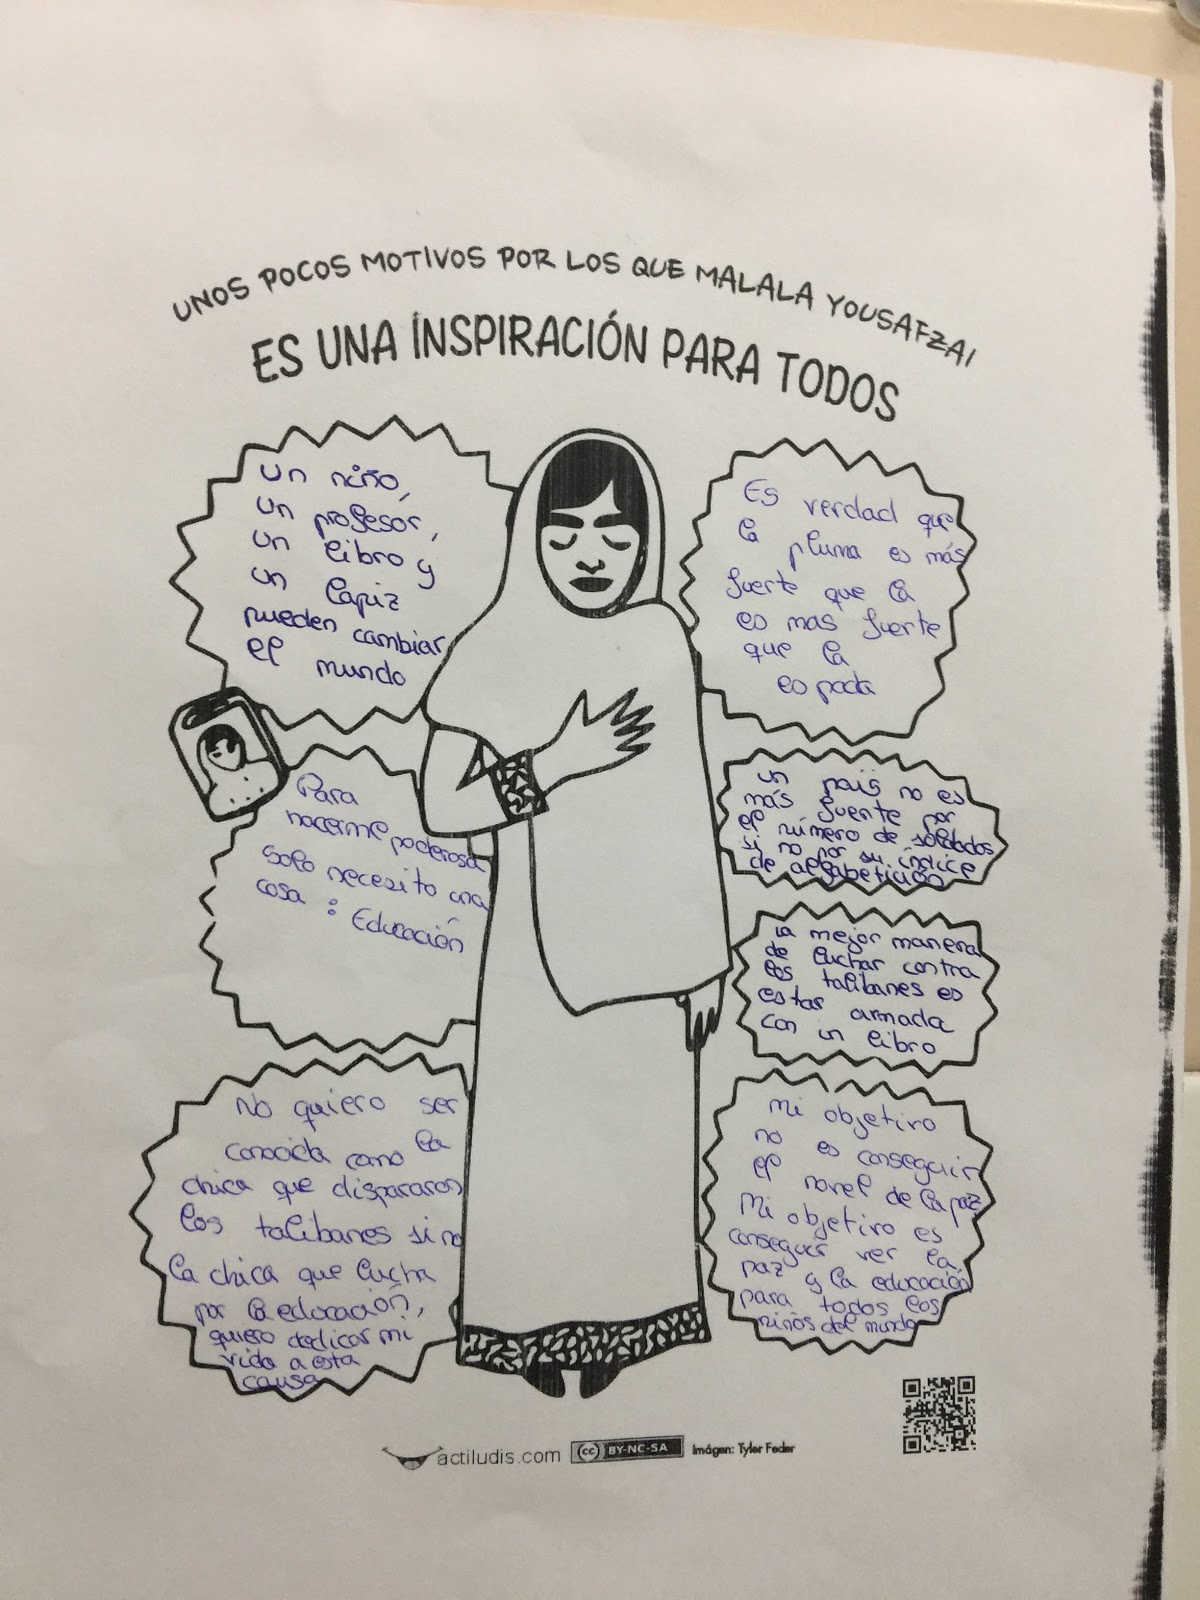 UNOS POCOS MOTIVOS POR LOS QUE MALALA YOUSAFZAI
ES UNA INSPIRACIÓN PARA TODOS
Un niño,
un profesor,
un libro y
un lapiz
pueden cambiar
el mundo
Para
hacerme poderosa
solo necesito una
cosa : Educación
No quiero ser
conocida como la
chica que dispararon
los talibanes si no
la chica que lucha
por la educación,
quiero dedicar mi
vida a esta
causa
Es verdad que
la pluma es más
fuerte que la
es mas fuerte
que la
espada
un país no es
más fuente por
el número de soldados
si no por su índice
de alfabetición
la mejor manera
de luchar contra
los talibanes es
estar armada
con un libro
Mi objetivo
no es conseguir
el novel de la paz
Mi objetivo es
conseguir ver la
paz y la educación
para todos los
niños del mundo
actiludis.com
cc BY-NC-SA
Imágen: Tyler Feder